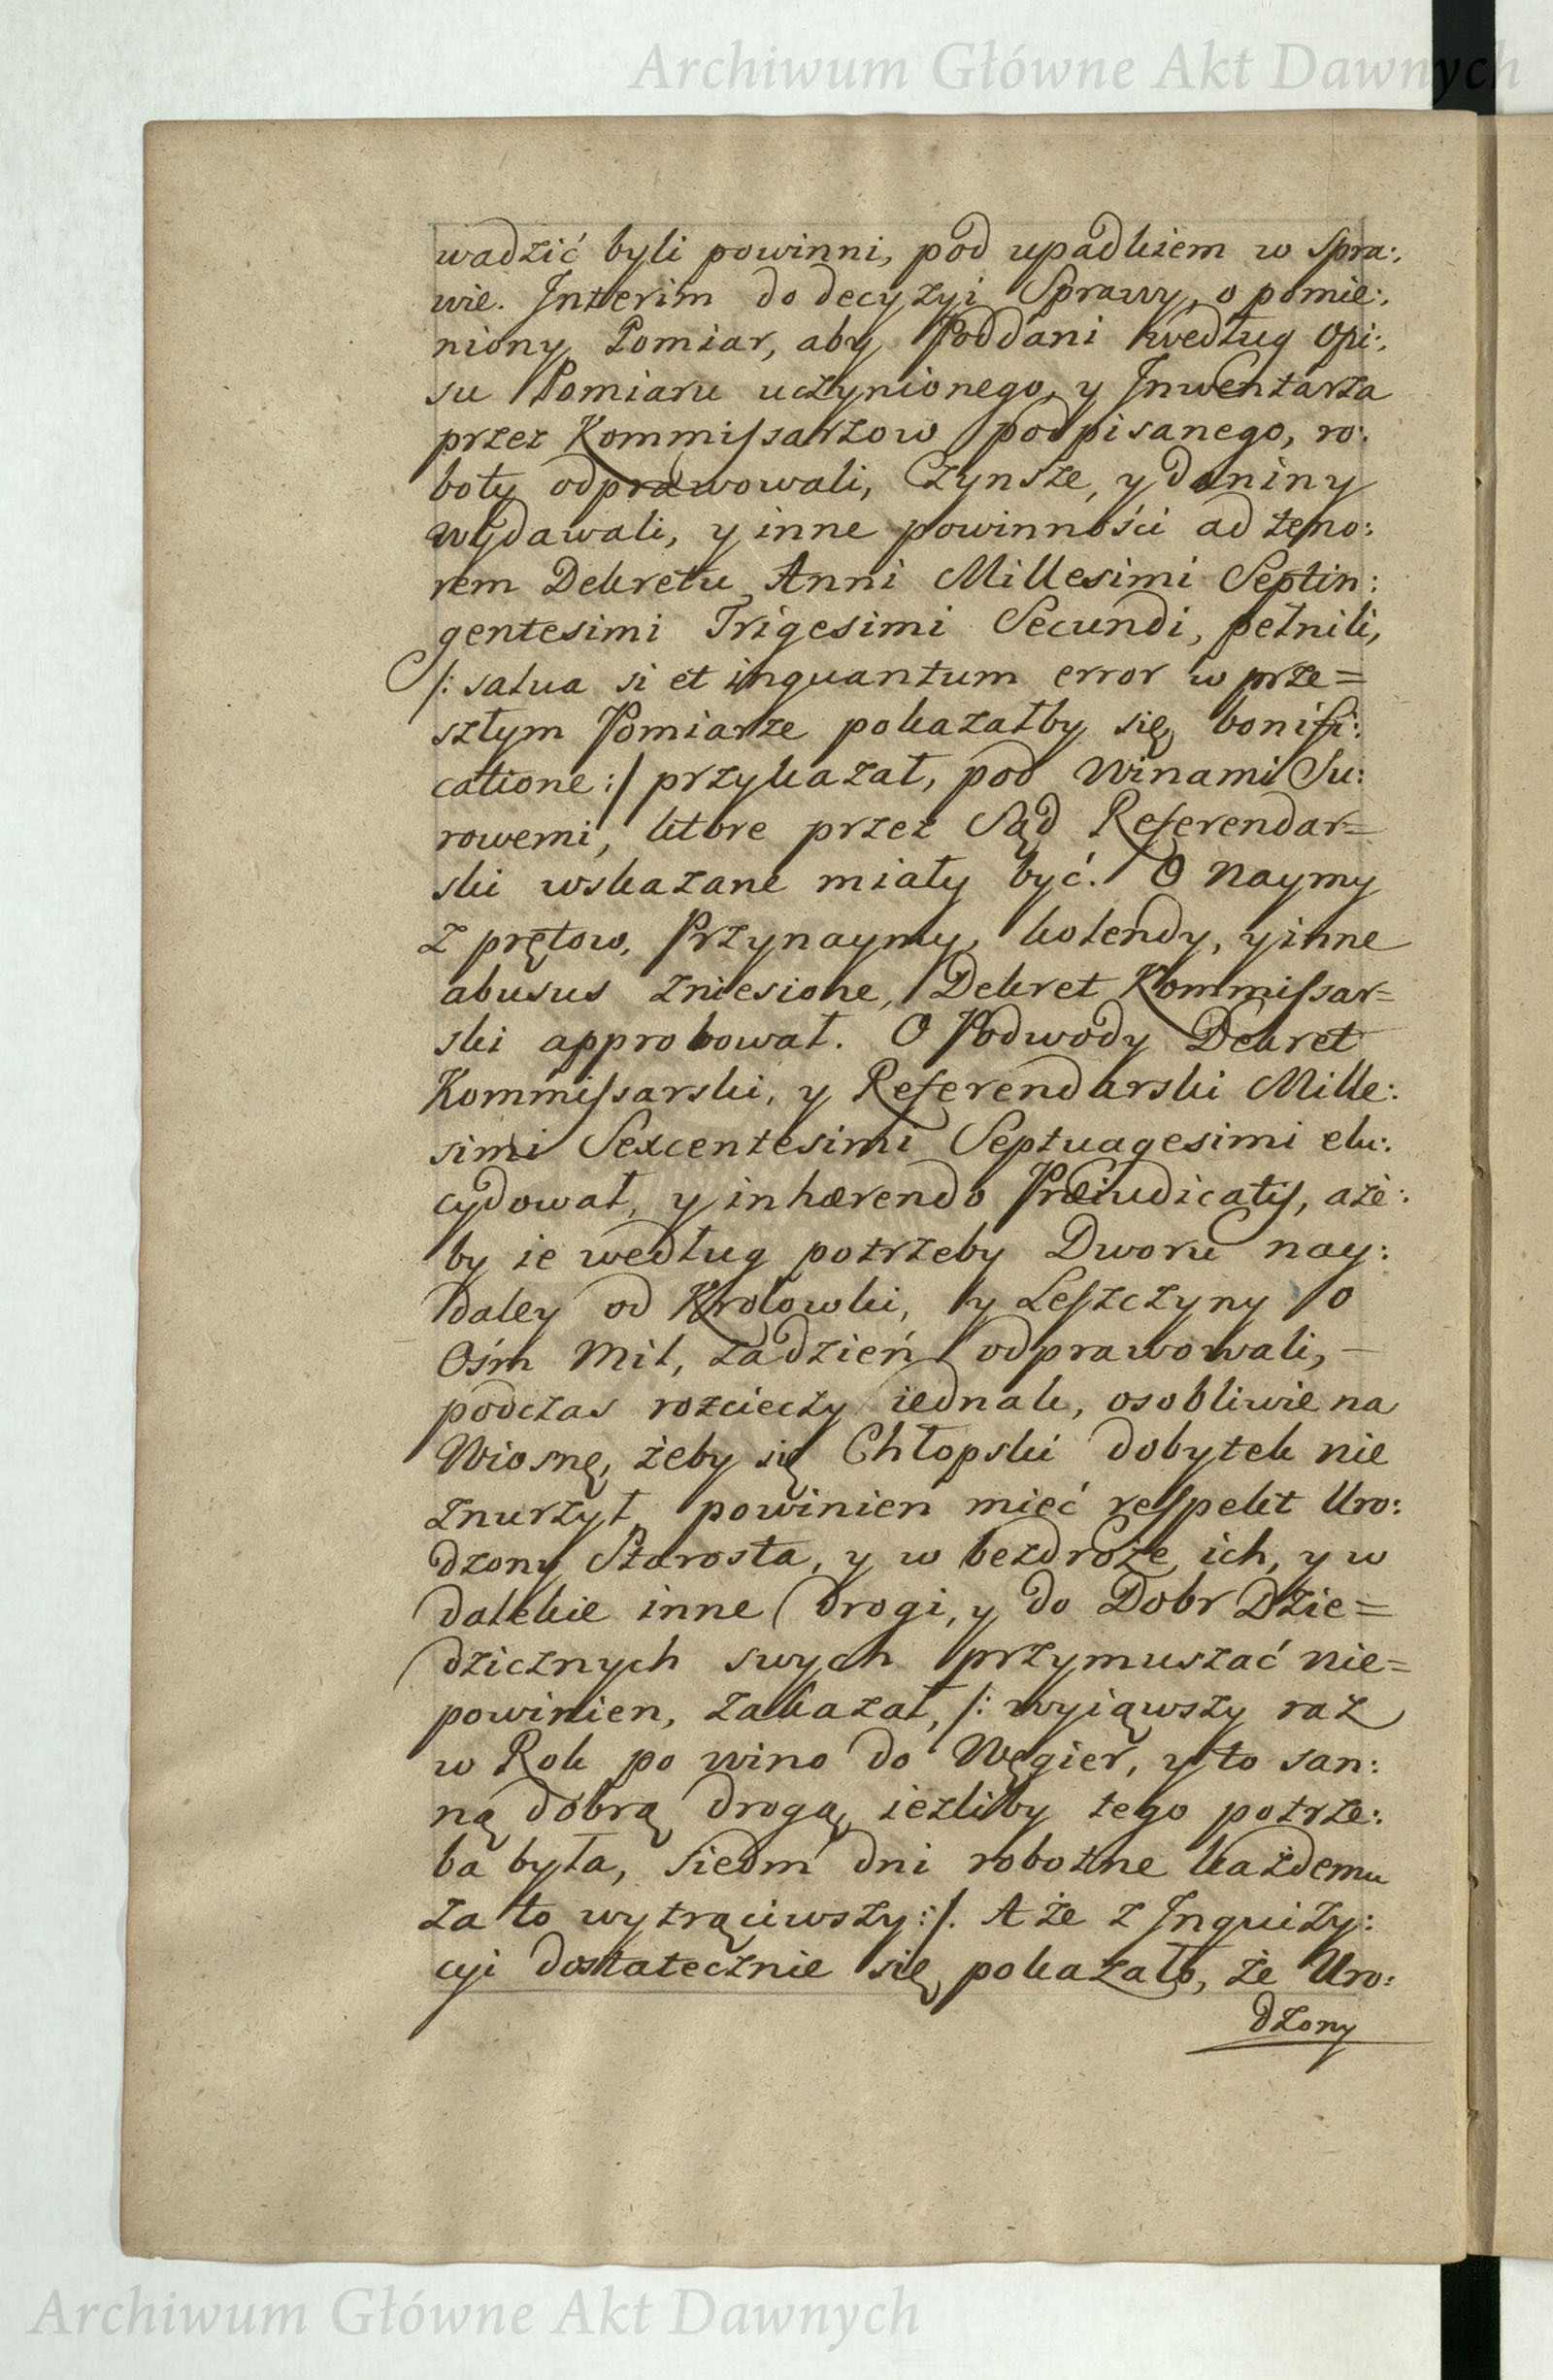 Archiwum Główne Akt Dawnych
wadzić byli powinni, pod upadkiem w Spra:
wie. Interim do decyzyi Sprawy, o pomie:
niony Pomiar, aby Poddani według Opi:
su Pomiaru uczynionego, y Inwentarza
przez Kommissarzow podpisanego, ro:
boty odprawowali, Czynsze, y daniny
wydawali, y inne powinności ad teno:
rem Dekretu Anni Millesimi Septin:
gentesimi Trigesimi Secundi, pełnili,
/: salva si et inquantum error w prze=
szłym Pomiarze pokazałby się bonifi:
catione :/ przykazał, pod Winami Su:
rowemi, ktore przez Sąd Referendar=
ski wskazane miały być. O Naymy
z prętow, Przynaymy, kolendy, y inne
abusus zniesione, Dekret Kommissar=
ski approbował. O Podwody Dekret
Kommissarski, y Referendarski Mille:
simi Sexcentesimi Septuagesimi elu:
cydował, y inhærendo Præiudicatis, aże:
by ie według potrzeby Dworu nay:
daley od Krolowki, y Leszczyny o
Ośm Mil, za dzień odprawowali, –
podczas rozcieczy iednak, osobliwie na
Wiosnę, żeby się Chłopski dobytek nie
znurzył, powinien mieć respekt Uro:
dzony Starosta, y w bezdroże ich, y w
dalekie inne drogi, y do Dobr Dzie=
dzicznych swych przymuszać nie=
powinien, zakazał, /: wyiąwszy raz
w Rok po wino do Węgier, y to san:
ną dobrą drogą, ieżliby tego potrze:
ba była, siedm dni robotne każdemu
za to wytrąciwszy :/. A że z Inquizy:
cyi dostatecznie się pokazało, że Uro:
dzony
Archiwum Główne Akt Dawnych